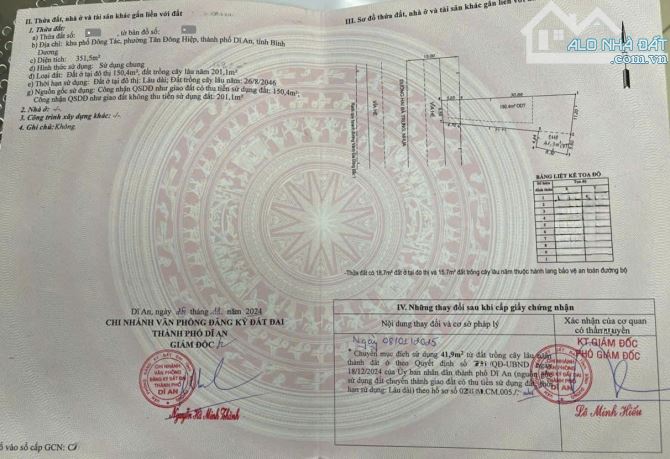 II. Thửa đất, nhà ở và tài sản khác gắn liền với đất
1. Thửa đất:
a) Thửa đất số: , tờ bản đồ số:
b) Địa chỉ: khu phố Đông Tác, phường Tân Đông Hiệp, thành phố Dĩ An, tỉnh Bình
Dương
c) Diện tích: 351,5m²
d) Hình thức sử dụng: Sử dụng chung
đ) Loại đất: Đất ở tại đô thị 150,4m², đất trồng cây lâu năm 201,1m²
e) Thời hạn sử dụng: Đất ở tại đô thị: Lâu dài; Đất trồng cây lâu năm: 26/8/2046
g) Nguồn gốc sử dụng: Công nhận QSDĐ như giao đất có thu tiền sử dụng đất: 150,4m²,
Công nhận QSDĐ như giao đất không thu tiền sử dụng đất: 201,1m²
2. Nhà ở: -/-
3. Công trình xây dựng khác: -/-
4. Ghi chú: Không.
Dĩ An, ngày tháng năm 2024
CHI NHÁNH VĂN PHÒNG ĐĂNG KÝ ĐẤT ĐAI
THÀNH PHỐ DĨ AN
GIÁM ĐỐC
CHI NHÁNH
VĂN PHÒNG
ĐĂNG KÝ ĐẤT ĐAI
THÀNH PHỐ
DĨ AN
Nguyễn Hà Minh Thành
số vào sổ cấp GCN:
III. Sơ đồ thửa đất, nhà ở và tài sản khác gắn liền với đất
ALO NHÀ ĐẤT
.com.vn
VỈA HÈ
ĐƯỜNG HAI BÀ TRƯNG, NHỰA
VỈA HÈ
150.4m² ODT
BẢNG LIỆT KÊ TỌA ĐỘ
Số hiệu
đỉnh thửa
Tọa độ
-Thửa đất có 18,7m² đất ở tại đô thị và 15,7m² đất trồng cây lâu năm thuộc hành lang bảo vệ an toàn đường bộ
IV. Những thay đổi sau khi cấp giấy chứng nhận
Nội dung thay đổi và cơ sở pháp lý
Xác nhận của cơ quan
có thẩm quyền
Ngày
Chuyển mục đích sử dụng 41,9m² từ đất trồng cây lâu năm
thành đất ở theo Quyết định số /QĐ-UBND ngày
18/12/2024 của Ủy ban nhân dân thành phố Dĩ An (nguồn gốc
sử dụng đất chuyển thành giao đất có thu tiền sử dụng đất, thời
hạn sử dụng: Lâu dài) theo hồ sơ số
KT.GIÁM ĐỐC
PHÓ GIÁM ĐỐC
CHI NHÁNH
VĂN PHÒNG
ĐĂNG KÝ ĐẤT ĐAI
THÀNH PHỐ
DĨ AN
Lê Minh Hiếu